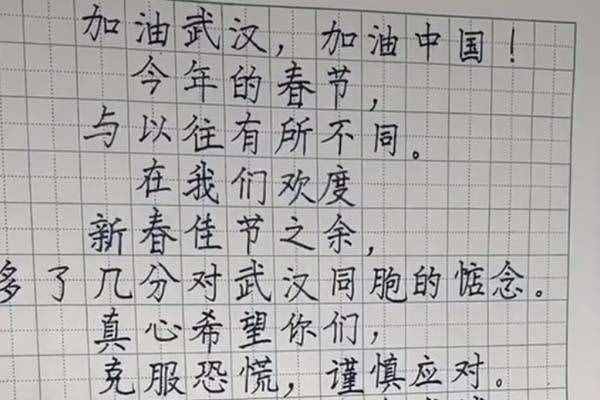 加油武汉，加油中国！
今年的春节，
与以往有所不同。
在我们欢度
新春佳节之余，
多了几分对武汉同胞的惦念。
真心希望你们，
克服恐慌，谨慎应对。